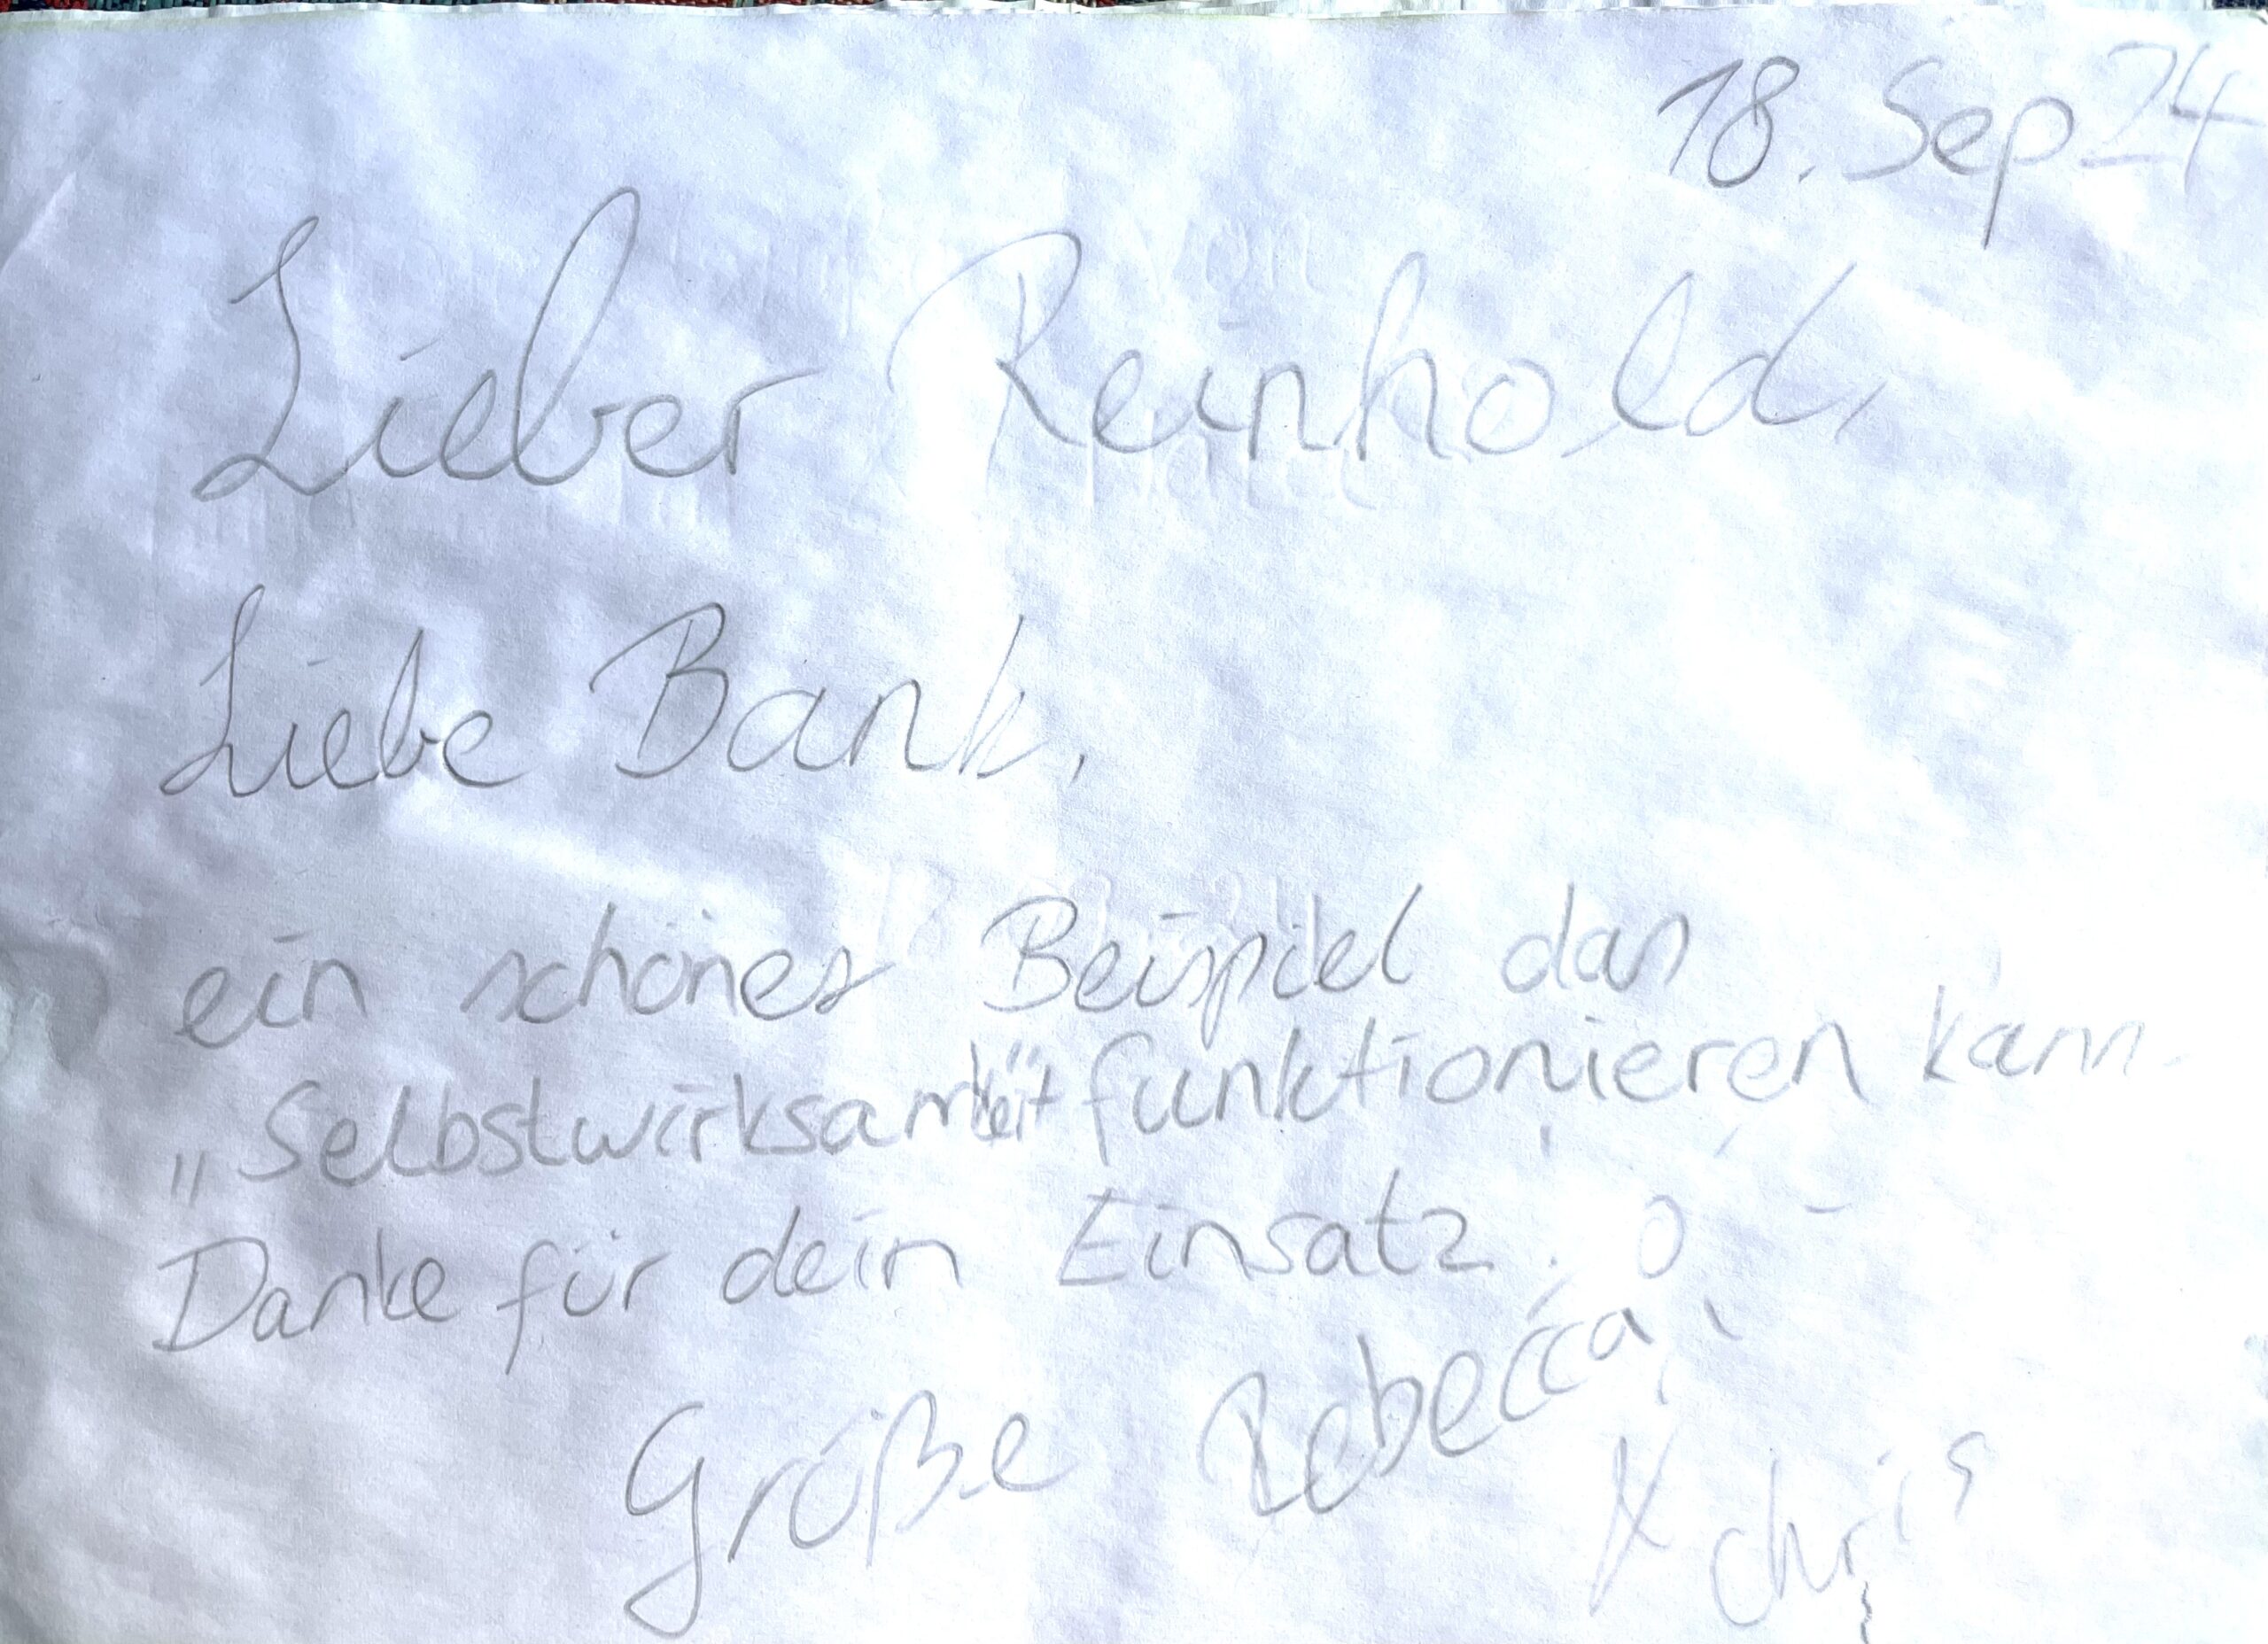 18. Sep 24
Lieber Reinhold,
Liebe Bank,
ein schönes Beispiel das
„Selbstwirksamkeit" funktionieren kann.
Danke für dein Einsatz.
Grüße Rebecca
& Chris